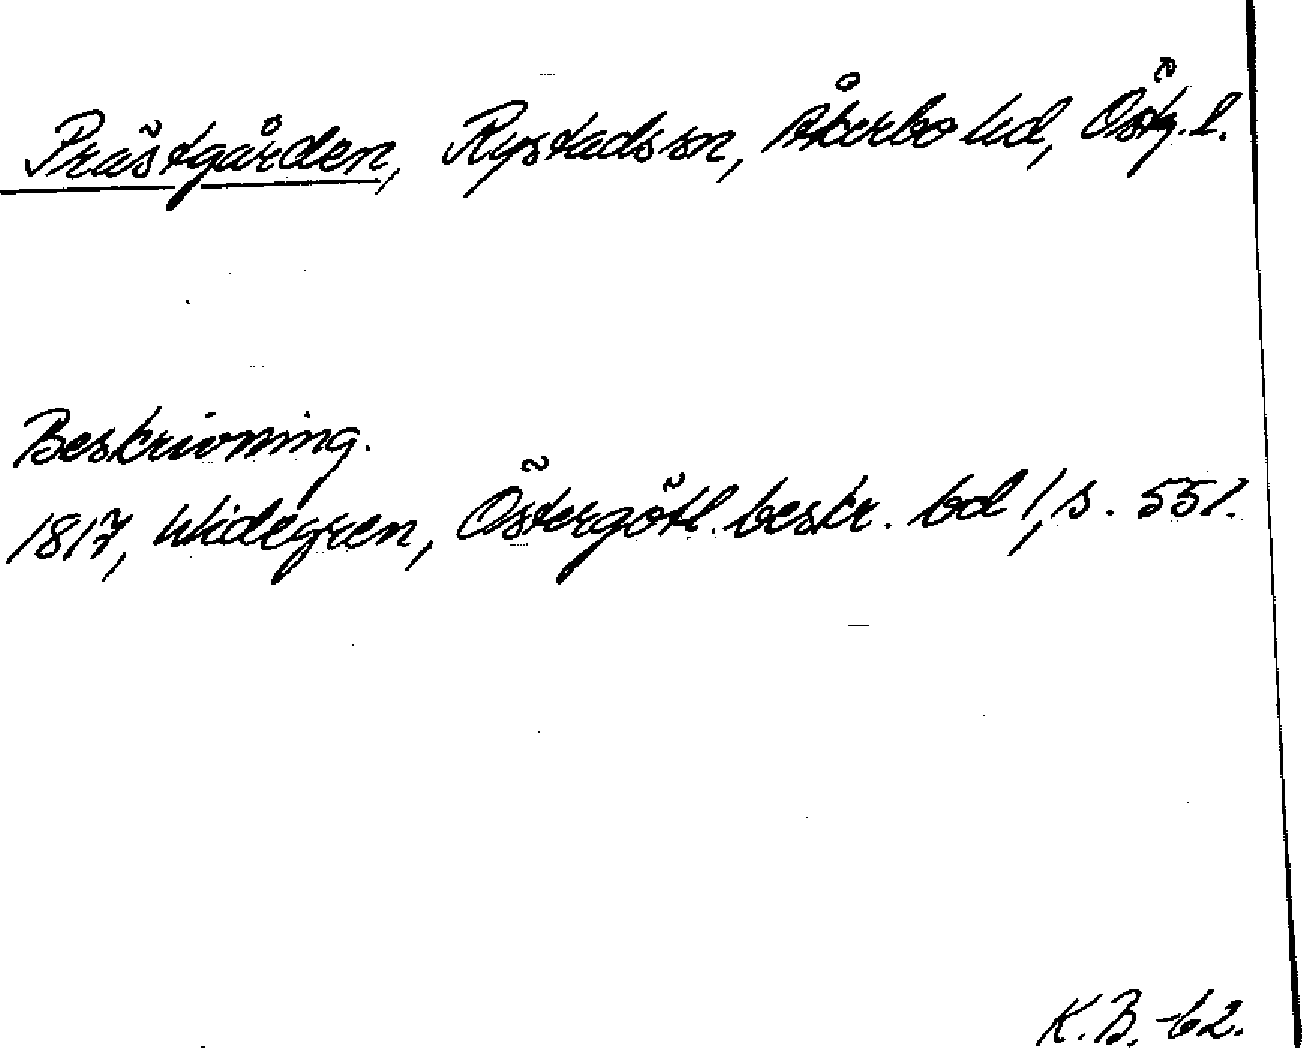 Prästgården, Rystads sn, Åkerbo hd, Östg. l.
Beskrivning.
1817, Widegren, Östergötl. beskr. bd 1, s. 551.
K.B. -62.